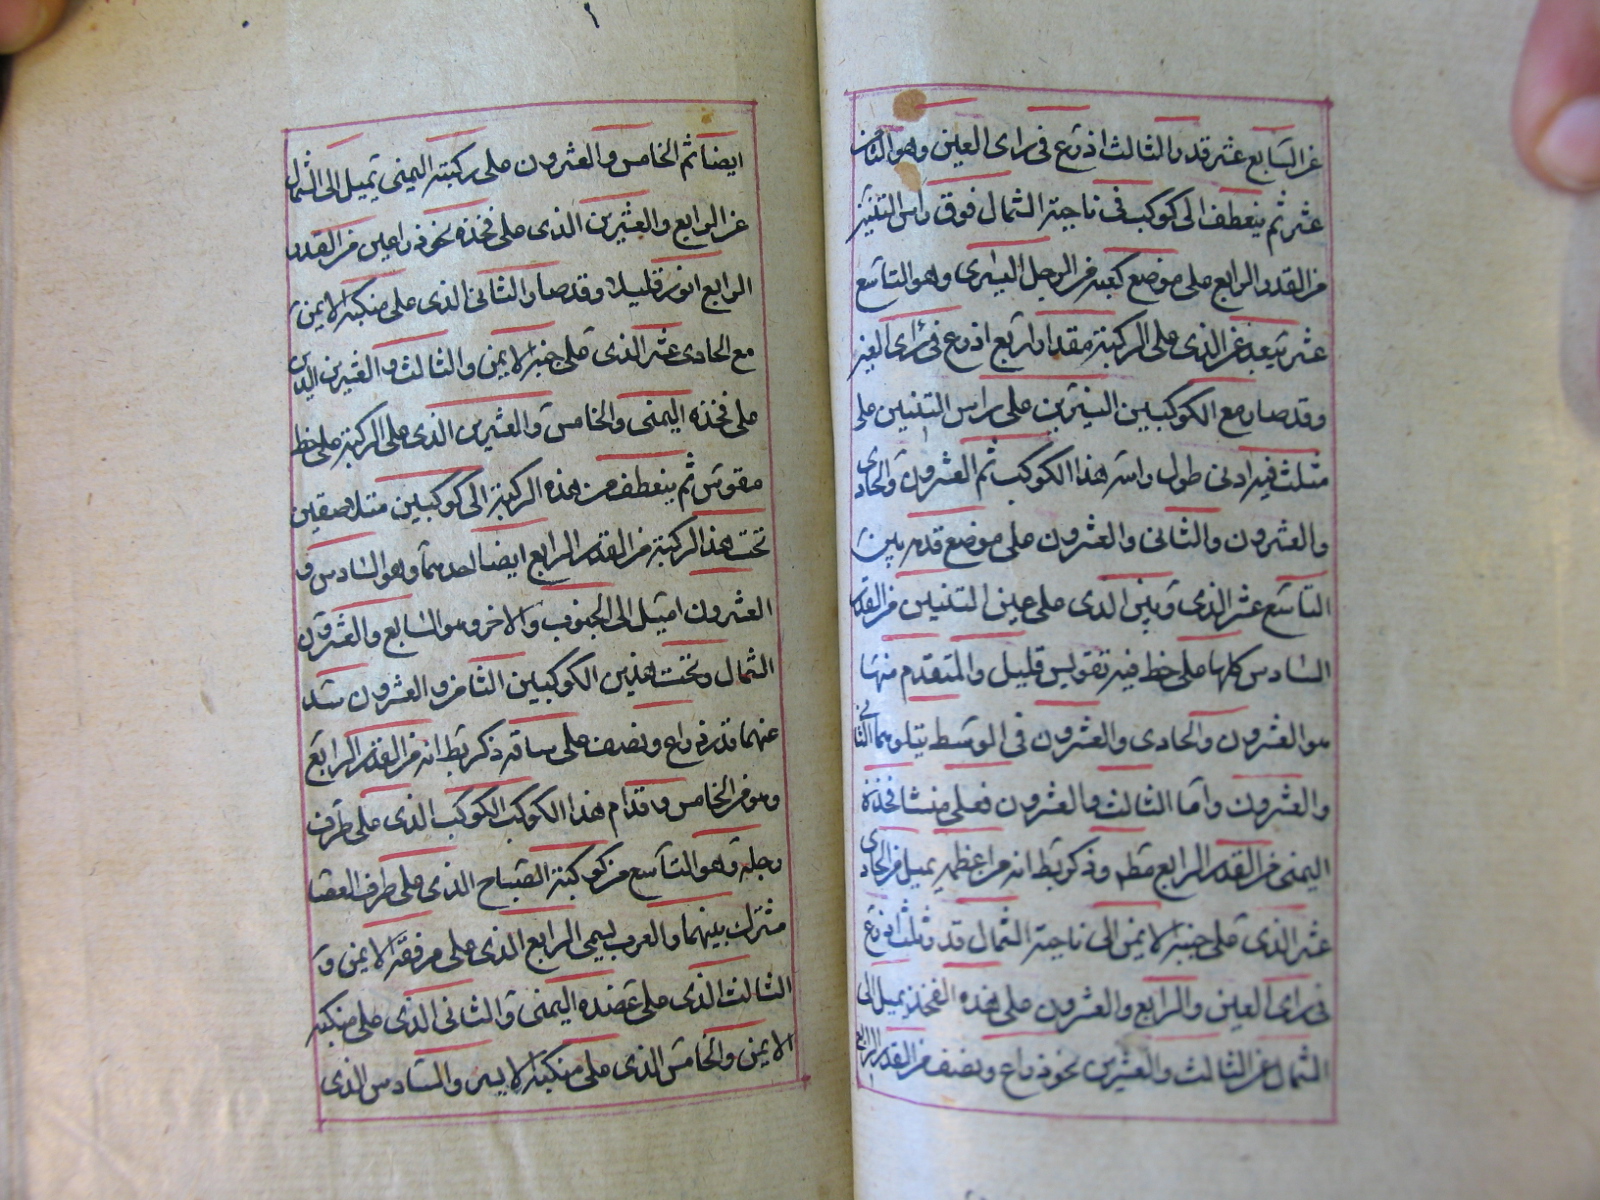 عن السابع عشر قدر الثالث اذرع فى راى العين وهو الثامن
عشر ثم ينعطف الى كوكب فى ناحية الشمال فوق راس التنين
من القدر الرابع على موضع كعبه من الرجل اليسرى وهو التاسع
عشر يتبعد عن الذى على الركبة مقدار اربع اذرع فى راى العين
وقد صار مع الكوكبين النيرين على راس التنين على
مثلث فيه ادنى طول راسه هذا الكوكب ثم العشرون والحادى
والعشرون والثانى والعشرون على موضع قدمه بين
التاسع عشر الذى وبين الذى على عين التنين من القدر
السادس كلها على خط فيه تقويس قليل والمتقدم منها
هو العشرون والحادى والعشرون فى الوسط يتلوهما الثانى
والعشرون واما الثالث والعشرون فعلى منشا فخذه
اليمنى من القدر الرابع وذكر بط انه من اعظمه يميل من الحادى
عشر الذى على جنبه الايمن الى ناحية الشمال قدر ثلث اذرع
فى راى العين والرابع والعشرون على هذه الفخذ يميل الى
الشمال عن الثالث والعشرين نحو ذراع ونصف من القدر الرابع
ايضا ثم الخامس والعشرون على ركبته اليمنى يميل الى الشمال
عن الرابع والعشرين الذى على فخذه نحو ذراعين من القدر
الرابع انور قليلا وقد صار الثانى الذى على منكبه الايمن
مع الحادى عشر الذى على جنبه الايمن والثالث والعشرين الذى
على فخذه اليمنى والخامس والعشرين الذى على الركبة على خط
مقوس ثم ينعطف من هذه الركبة الى كوكبين متلاصقين
تحت هذه الركبة من القدر الرابع ايضا احدهما وهو السادس و
العشرون اميل الى الجنوب والاخر وهو السابع والعشرون
الشمال وتحت هذين الكوكبين الثامن والعشرون
عنهما قدر ذراع ونصف على ساقه ذكر بط انه من القدر الرابع
وهو من الخامس وقدام هذا الكوكب الكوكب الذى على طرف
رجله وهو التاسع من كوكبة الصياح الذى على طرف العصا
مشترك بينهما والعرب يسمى الرابع الذى على مرفقه الايمن و
الثالث الذى على عضده اليمنى والثانى الذى على منكبه
الايمن والخامس الذى على منكبه الايسر والسادس الذى